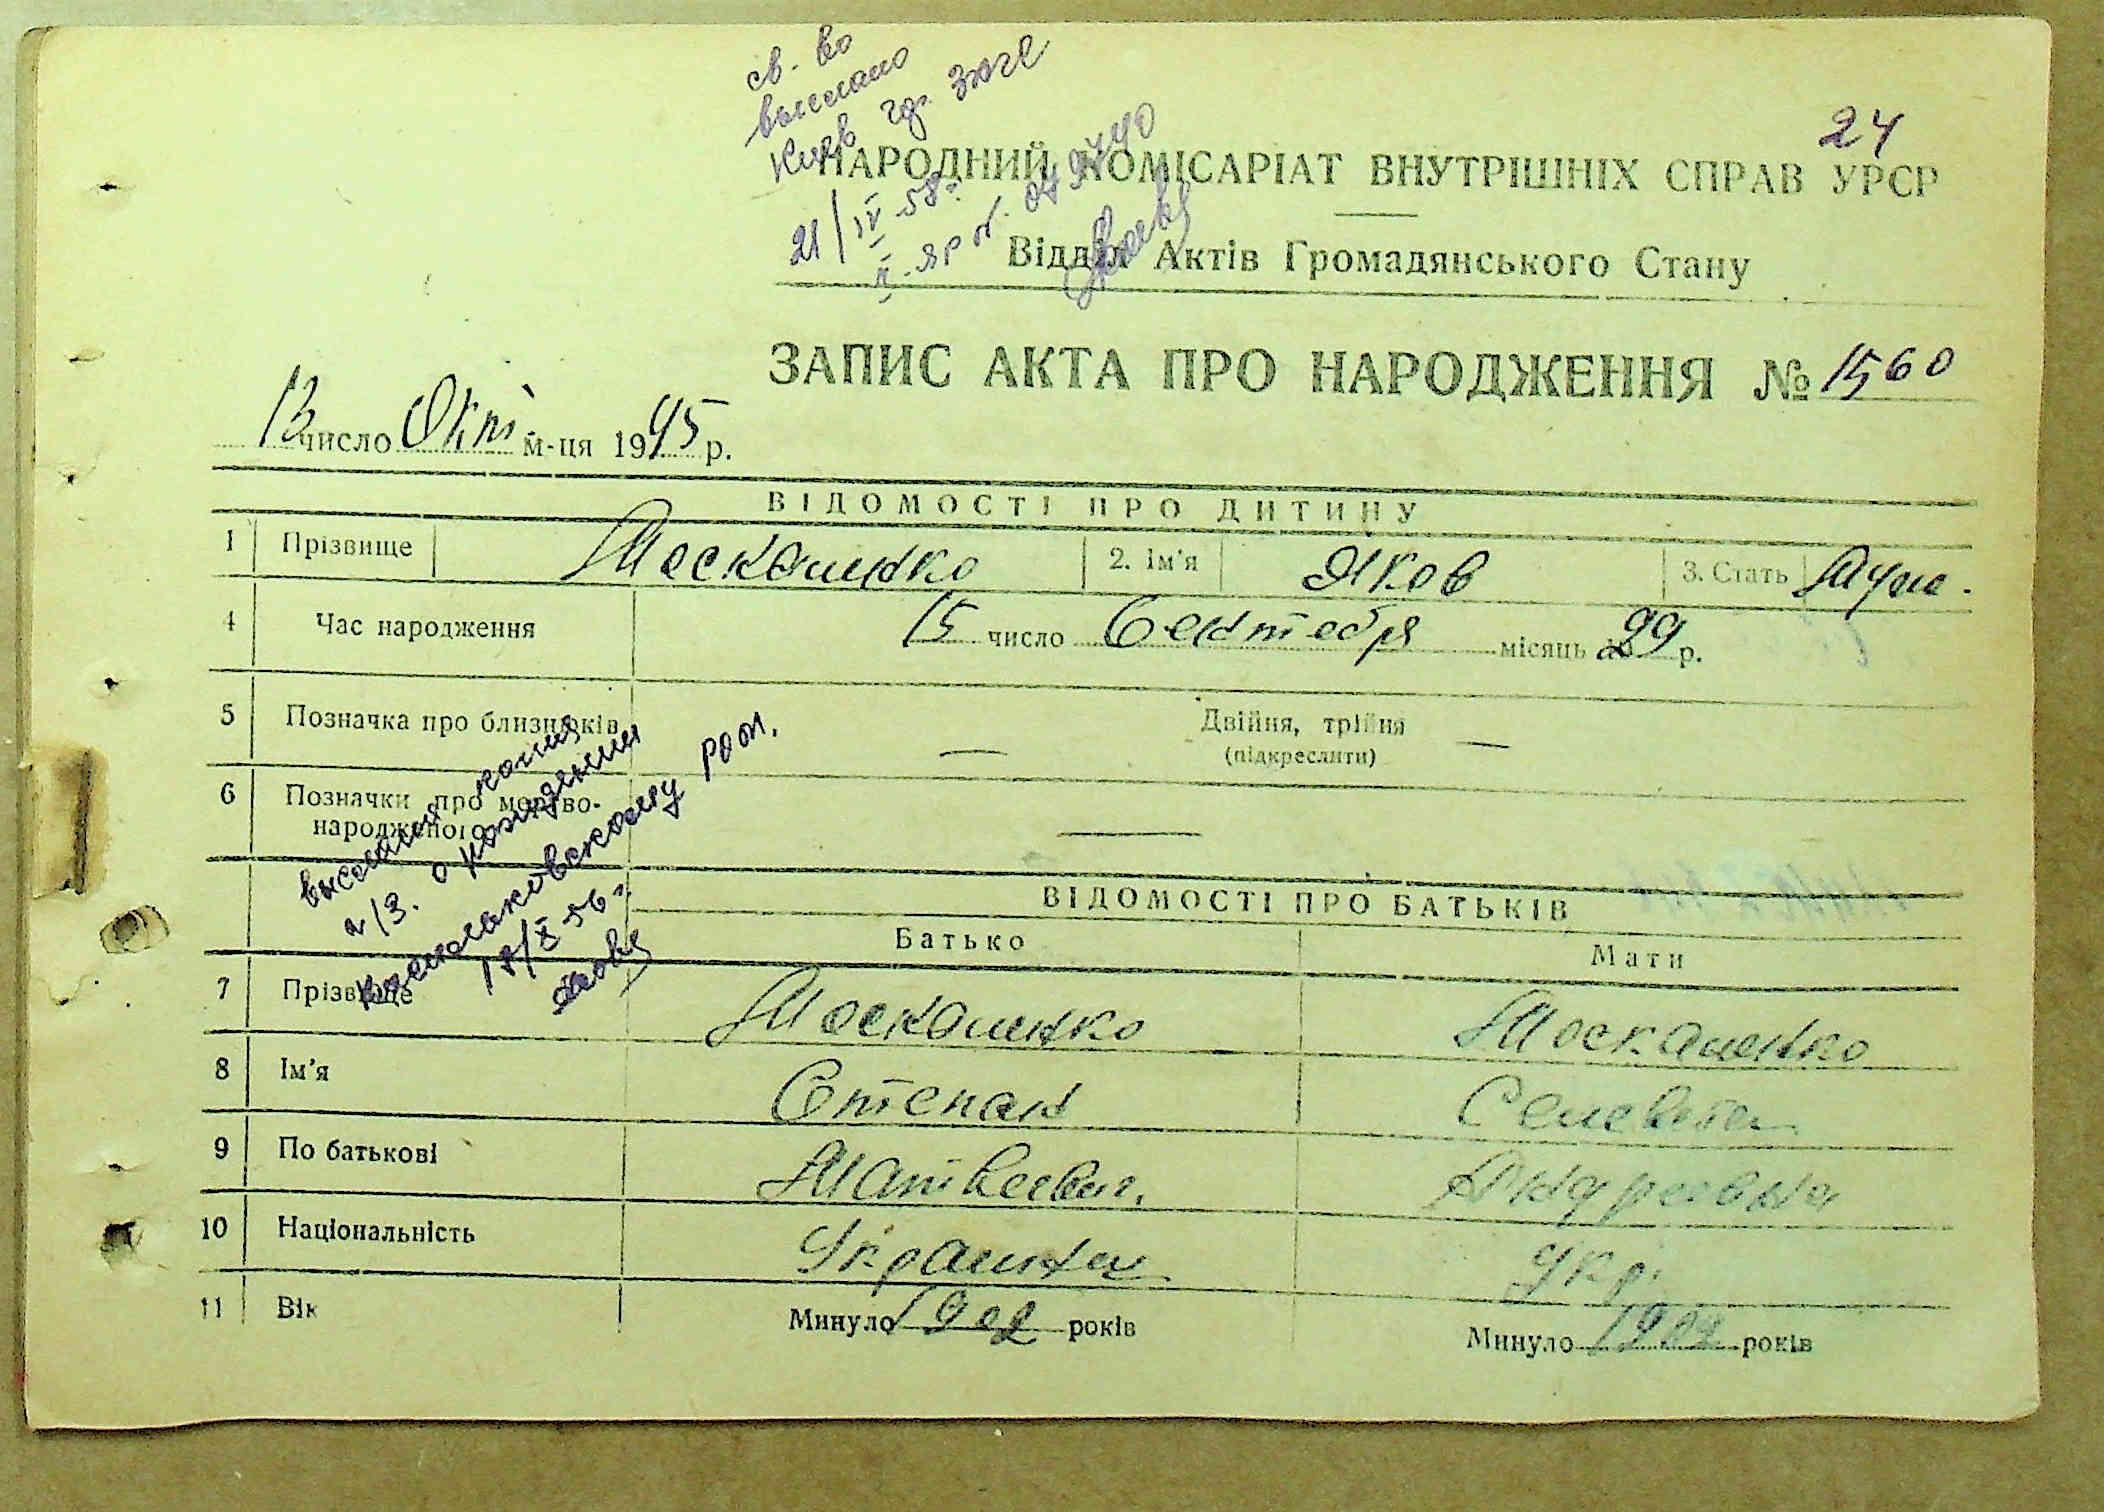 св. во
выслано
Киев гр. Згсе
24
НАРОДНИЙ КОМІСАРІАТ ВНУТРІШНІХ СПРАВ УРСР
21/IV 58г.
Відділ Актів Громадянського Стану
ЗАПИС АКТА ПРО НАРОДЖЕННЯ № 1560
13 число Окт м-ця 1945 р.
ВІДОМОСТІ ПРО ДИТИНУ
1 Прізвище Москаленко 2. Ім'я Яков 3. Стать Муж.
4 Час народження 15 число Сентебря місяць 29 р.
5 Позначка про близнюків — Двійня, трійня —
(підкреслити)
6 Позначки про мертво-
народженого —
выслана копия
а/з. о рождении
18/X 56 г.
ВІДОМОСТІ ПРО БАТЬКІВ
Батько Мати
7 Прізвище Москаленко Москаленко
8 Ім'я Степан
9 По батькові Матвеевич. Андреевна
10 Національність Украинец Укр.
11 Вік Минуло 1902 років Минуло 1902 років